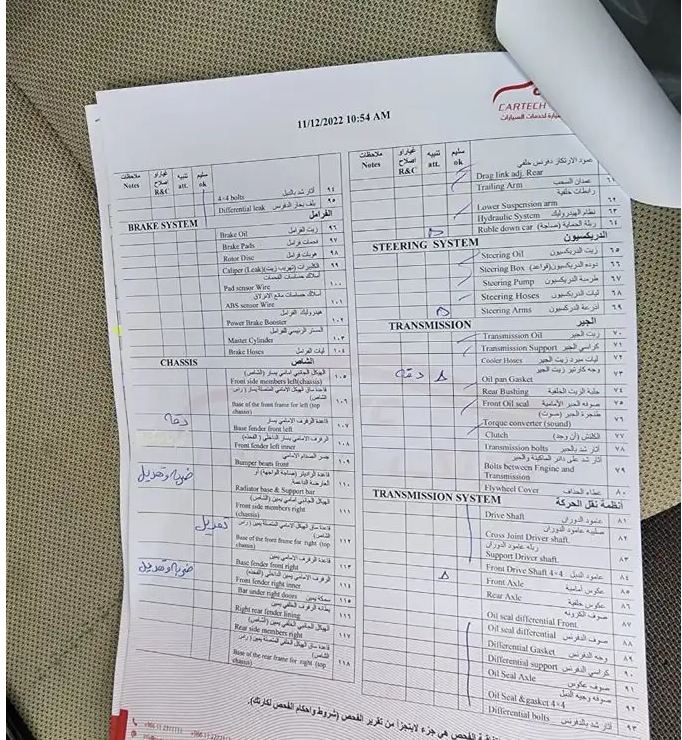 CARTECH
لخدمات السيارات
11/12/2022 10:54 AM
ملاحظات Notes
غيار او اصلاح R&C
تنبيه att.
سليم ok
عمود الارتكاز دفرنس خلفي
Drag link adj. Rear
Trailing Arm
عمدان السحب
٦١
رابطات خلفية
Lower Suspension arm
Hydraulic System نظام الهيدروليك ٦٣
Ruble down car ٦٤
STEERING SYSTEM الدريكسيون
Steering Oil زيت الدريكسيون ٦٥
Steering Box دودة الدريكسيون(قواعد) ٦٦
Steering Pump طرمبة الدريكسيون ٦٧
Steering Hoses ليات الدريكسيون ٦٨
Steering Arms أذرعة الدركسون ٦٩
TRANSMISSION الجير
Transmission Oil زيت الجير ٧٠
Transmission Support كراسي الجير ٧١
Cooler Hoses ليات مبرد زيت الجير ٧٢
وجه كارتير زيت الجير ٧٣
Oil pan Gasket
دقه
Rear Bushing جلبة الزيت الخلفية ٧٤
Front Oil seal صوفه الجير الأمامية ٧٥
طنجرة الجير (صوت) ٧٦
Torque converter (sound)
Clutch الكلتش (أن وجد) ٧٧
Transmission bolts آثار شد بالجير ٧٨
آثار شد على دائر الماكينة والجير
Bolts between Engine and Transmission ٧٩
Flywheel Cover غطاء الحداف ٨٠
TRANSMISSION SYSTEM أنظمة نقل الحركة
Drive Shaft عامود الدوران ٨١
صليبه عامود الدوران
Cross Joint Driver shaft. ٨٢
ربله عامود الدوران
Support Driver shaft. ٨٣
Front Drive Shaft 4×4 عامود الدبل ٨٤
Front Axle عكوس أمامية ٨٥
Rear Axle عكوس خلفية ٨٦
صوف الكرونه
Oil seal differential Front ٨٧
Oil seal differential صوف الدفرنس
Differential Gasket وجه الدفرنس ٨٩
Differential support كراسي الدفرنس ٩٠
Oil Seal Axle صوف عكوس ٩١
Oil Seal & gasket 4×4 صوفه وجيه الدبل ٩٢
Differential bolts آثار شد بالدفرنس ٩٣
ملاحظات Notes
غيار او اصلاح R&C
تنبيه att.
سليم ok
4×4 bolts آثار شد بالدبل ٩٤
Differential leak بلف بخار الدفرنس ٩٥
BRAKE SYSTEM الفرامل
Brake Oil زيت الفرامل ٩٦
Brake Pads فحمات فرامل ٩٧
Rotor Disc هوبات فرامل ٩٨
Caliper (Leak) الكليبرات (تهريب زيت) ٩٩
أسلاك حساسات الفحمات
Pad sensor Wire ١٠٠
أسلاك حساسات مانع الانزلاق
ABS sensor Wire ١٠١
هيدروليك الفرامل
Power Brake Booster ١٠٢
السنتر الرئيسي للفرامل
Master Cylinder ١٠٣
Brake Hoses ليات الفرامل ١٠٤
CHASSIS الشاص
الهيكل الجانبي امامي يسار (الشاص)
Front side members left(chassis) ١٠٥
قاعدة ساق الهيكل الامامي المتصلة يسار (راس الشاص)
Base of the front frame for left (top chassis) ١٠٦
قاعدة الرفرف الامامي يسار
Base fender front left ١٠٧
دقه
الرفرف الامامي يسار الداخلي (الفخذه)
Front fender left inner ١٠٨
جسر الصدام الامامي
Bumper beam front ١٠٩
قاعدة الراديتر (صاجة الواجهة) أو العارضة الداعمة
Radiator base & Support bar ١١٠
ضربه وتعديل
الهيكل الجانبي امامي يمين (الشاص)
Front side members right (chassis) ١١١
قاعدة ساق الهيكل الامامي المتصلة يمين (راس الشاص)
Base of the front frame for right (top chassis) ١١٢
تعديل
قاعدة الرفرف الامامي يمين
Base fender front right ١١٣
الرفرف الامامي يمين الداخلي (الفخذه)
Front fender right inner ١١٤
ضربه وتعديل
Bar under right doors سمكة يمين ١١٥
بطانه الرفرف الخلفي يمين
Right rear fender lining ١١٦
الهيكل الجانبي الخلفي يمين (الشاص)
Rear side members right ١١٧
قاعدة ساق الهيكل الخلفي المتصلة يمين (راس الشاص)
Base of the rear frame for right (top chassis) ١١٨
الفحص هي جزء لايتجزأ من تقرير الفحص (شروط واحكام الفحص لكارتك).